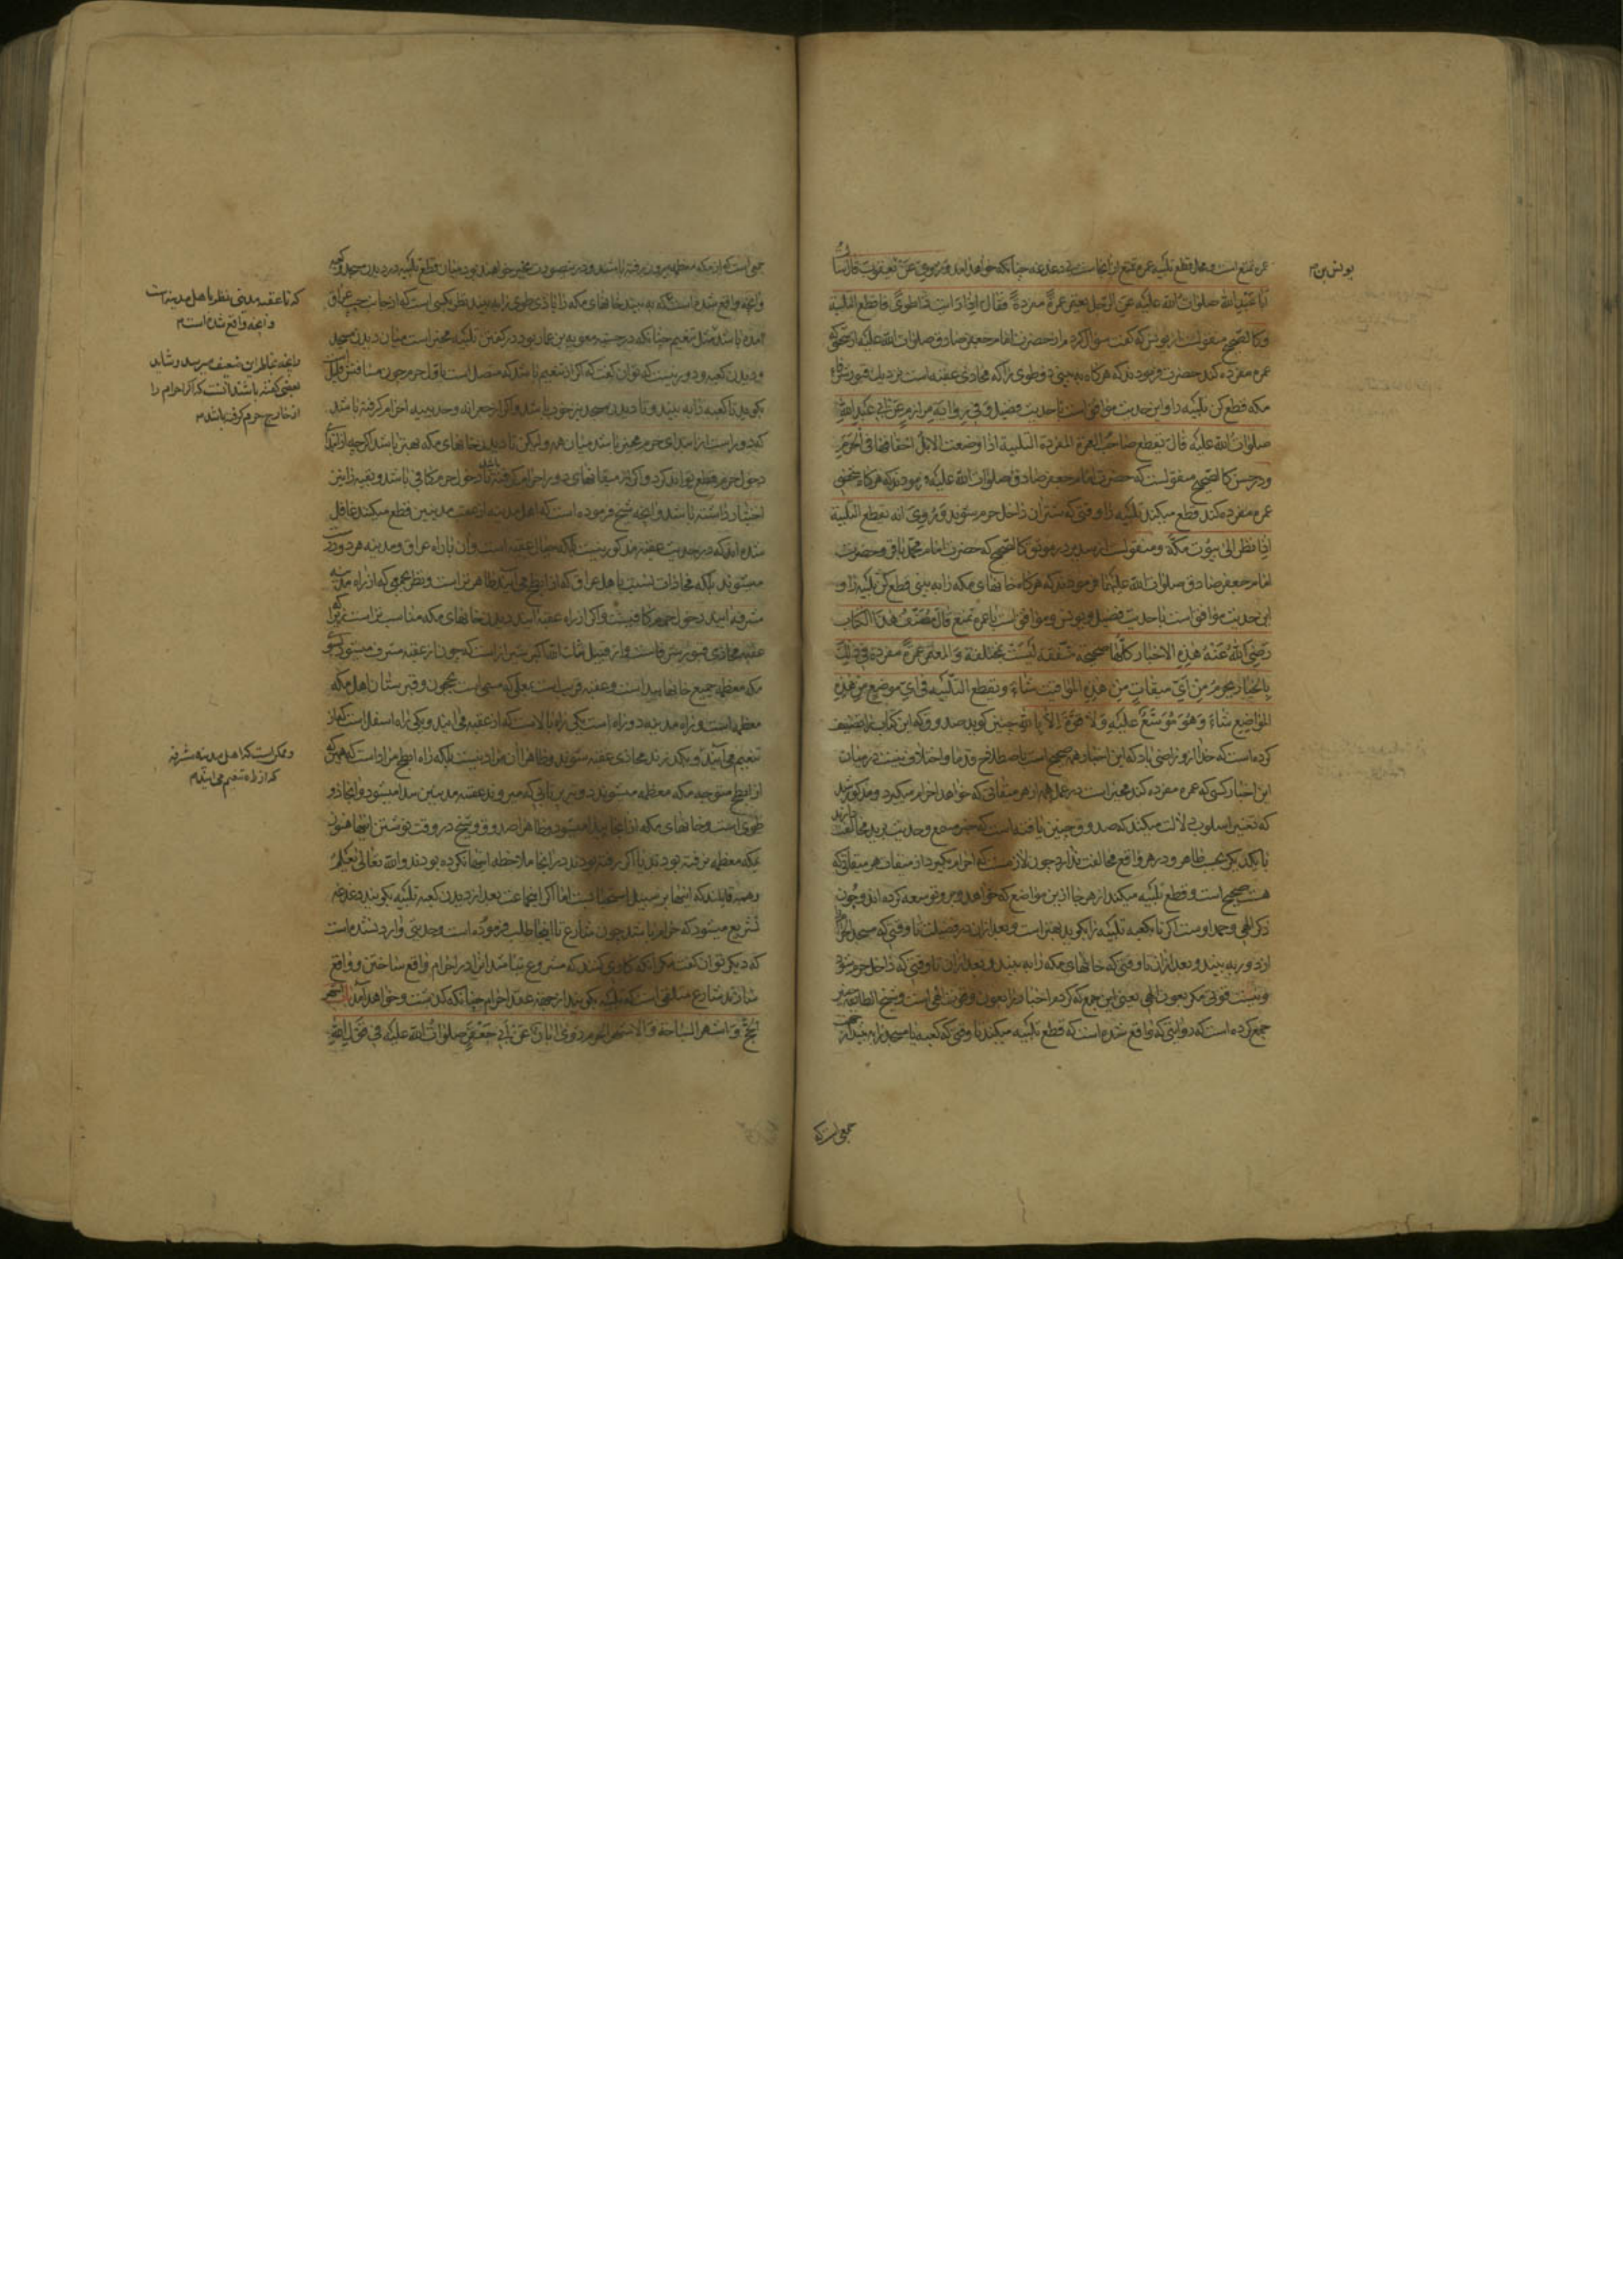 عمره تمتع است و محل قطع تلبیه عمره تمتع از آنجاست بی دغدغه چنانکه خواهد آمد و روی عن یعقوب قال سالت
ابا عبدالله صلوات الله علیه عن الرجل یعتمر عمرة مفردة فقال اذا رایت ذا طوی فاقطع التلبیة
وکالصحیح منقولست از یونس که گفت سؤال کردم از حضرت امام جعفر صادق صلوات الله علیه از شخصی که
عمره مفرده کند حضرت فرمودند که هرگاه به بینی ذو طوی را که محاذی عقبه است نزدیک قبور
مکه قطع کن تلبیه را و این حدیث موافق است با حدیث فضیل و فی روایة مرازم عن ابی عبدالله
صلوات الله علیه قال یقطع صاحب العمرة المفردة التلبیة اذا وضعت الابل اخفافها فی الحرم
و در حسن کالصحیح منقولست که حضرت امام جعفر صادق صلوات الله علیه فرمودند که هرگاه شخصی
عمره مفرده کند قطع میکند تلبیه را وقتی که شتران داخل حرم شوند و روی انه یقطع التلبیة
اذا نظر الی بیوت مکة و منقولست از سدیر در موثق کالصحیح که حضرت امام محمد باقر و حضرت
امام جعفر صادق صلوات الله علیهما فرمودند که هرگاه خانهای مکه را به بینی قطع کن تلبیه را و
این حدیث موافق است با حدیث فضیل و یونس و موافق است با عمره تمتع قال مصنف هذا الکتاب
رضی الله عنه هذه الاخبار کلها صحیحة متفقة لیست بمختلفة و المعتمر عمرة مفردة فی ذلک
بالخیار یحرم من ای میقات من هذه المواقیت شاء و یقطع التلبیة فی ای موضع من هذه
المواضع شاء و هو موسع علیه و لا قوة الا بالله چنین گوید صدوق که این کتاب را تصنیف
کرده است که خدا از و راضی باد که این اخبار همه صحیح است باصطلاح قدما و اختلاف نیست در میان
این اخبار کسی که عمره مفرده کند مخیر است در عمل همه از هر میقاتی که خواهد احرام میگیرد و مذکور شد
که تغییر اسلوب دلالت میکند که صدوق چنین یافته است که خبر مسمع و حدیث برید مخالفت دارند
با یکدیگر بحسب ظاهر و در واقع مخالفت ندارد چون لازمست که احرام گیرد از میقات هر میقاتی که
هست صحیح است و قطع تلبیه میکند از هر جا ازین مواضع که خواهد و بر و توسعه کرده اند و چون
ذکر الهی و حمد اوست اگر تا کعبه تلبیه را بگوید بهتر است و بعد ازان در فضیلت تا وقتی که مسجد الحرام
از دور به بیند و بعد ازان تا وقتی که خانهای مکه را به بیند و بعد ازان تا وقتی که داخل حرم شود
و نیست قوتی مگر بعون الهی یعنی این جمع که کردم اخبار را بعون و توفیق الهی است و شیخ الطایفه
جمع کرده است که روایتی که واقع شده است که قطع تلبیه میکند تا وقتی که کعبه یا مسجد را به بیند از جهت
جمعی است که
یونس بن م
جمعی است که از مکه معظمه بیرون رفته باشند و درین صورت مخیر خواهند بود میان قطع تلبیه در دیدن مسجد و کعبه
و آنچه واقع شده است که به بیند خانهای مکه را یا ذی طوی را به بیند نظر بکسی است که از جانب عراق
آمده باشد مثل تنعیم چنانکه در صحیحه معویه بن عمار بود در گفتن تلبیه مخیر است میان دیدن مسجد
و دیدن کعبه و دور نیست که توان گفت که اگر از تنعیم باشد که متصل است باول حرم چون مسافتش قلیل است
بگوید تا کعبه را به بیند و تا دیدن مسجد نیز خوب باشد و اگر از جعرانه و حدیبیه احرام گرفته باشد
که دور است از ابتدای حرم مخیر باشد میان همه و لیکن تا دیدن خانهای مکه بهتر باشد اگرچه از ابتدای
دخول حرم قطع تواند کرد و اگر از میقاتهای دور احرام گرفته باشد تا دخول حرم کافی باشد و بقیه را نیز
اختیار داشته باشد و آنچه شیخ فرموده است که اهل مدینه از عقبه مدنیین قطع میکنند غافل
شده اند که در حدیث عقبه مذکور نیست بلکه حیال عقبه است و آن با راه عراق و مدینه هر دو درست
میشوند بلکه محاذات نسبت باهل عراق که از ابطح می آیند ظاهر تر است و نظر بجمعی که از راه مدینه
مشرفه آیند دخول حرم کافیست و اگر از راه عقبه آیند دیدن خانهای مکه مناسب تر است زیرا که
عقبه محاذی قبور
مکه معظمه جمیع خانها پیداست و عقبه قریب است بمحلی که مسمی است بحجون و قبرستان اهل مکه
معظمه است و راه مدینه دو راه است یکی راه بالاست که از عقبه می آیند و یکی راه اسفل است که از
تنعیم می آیند و یکدیگر زند محاذی عقبه میشوند و ظاهرا آن مراد نیست بلکه راه ابطح مراد است که هرکه
از ابطح متوجه مکه معظمه میشوند در زیر پلی که میروند عقبه مدنیین پیدا میشود و آنجا ذو
طوی است و خانهای مکه از آنجا پیدا میشود و ظاهرا صدوق و شیخ در وقت نوشتن اینها هنوز
بمکه معظمه نرفته بودند یا اگر رفته بودند در آنجا ملاحظه اینها نکرده بودند و الله تعالی یعلم
و همه قایلند که اینها بر سبیل استحبابست اما اگر این جماعت بعد از دیدن کعبه تلبیه بگویند دغدغه
تشریع میشود که حرام باشد چون شارع تا اینجا طلب فرموده است و حدیثی وارد نشده است
که دیگر توان گفت مگر آنکه کاری کنند که مشروع نباشد آنرا در احرام واقع ساختن و واقع
سازند شارع متلقی است که تلبیه بگویند از جهة عقد احرام چنانکه گذشت و خواهد آمد باب اشهر
الحج و اشهر السیاحة و الاشهر الحرم روی ابان عن ابی جعفر صلوات الله علیه فی قول الله
که تا عقبه مدنیی نظر باهل مدینه است
و آنچه واقع شده است م
و آنچه بخاطر این ضعیف میرسد و شاید
بعضی گفته باشند آنست که اگر احرام را
از خارج حرم گرفته باشد م
و ممکن است که اهل مدینه مشرفه
که از راه تنعیم می آیند م